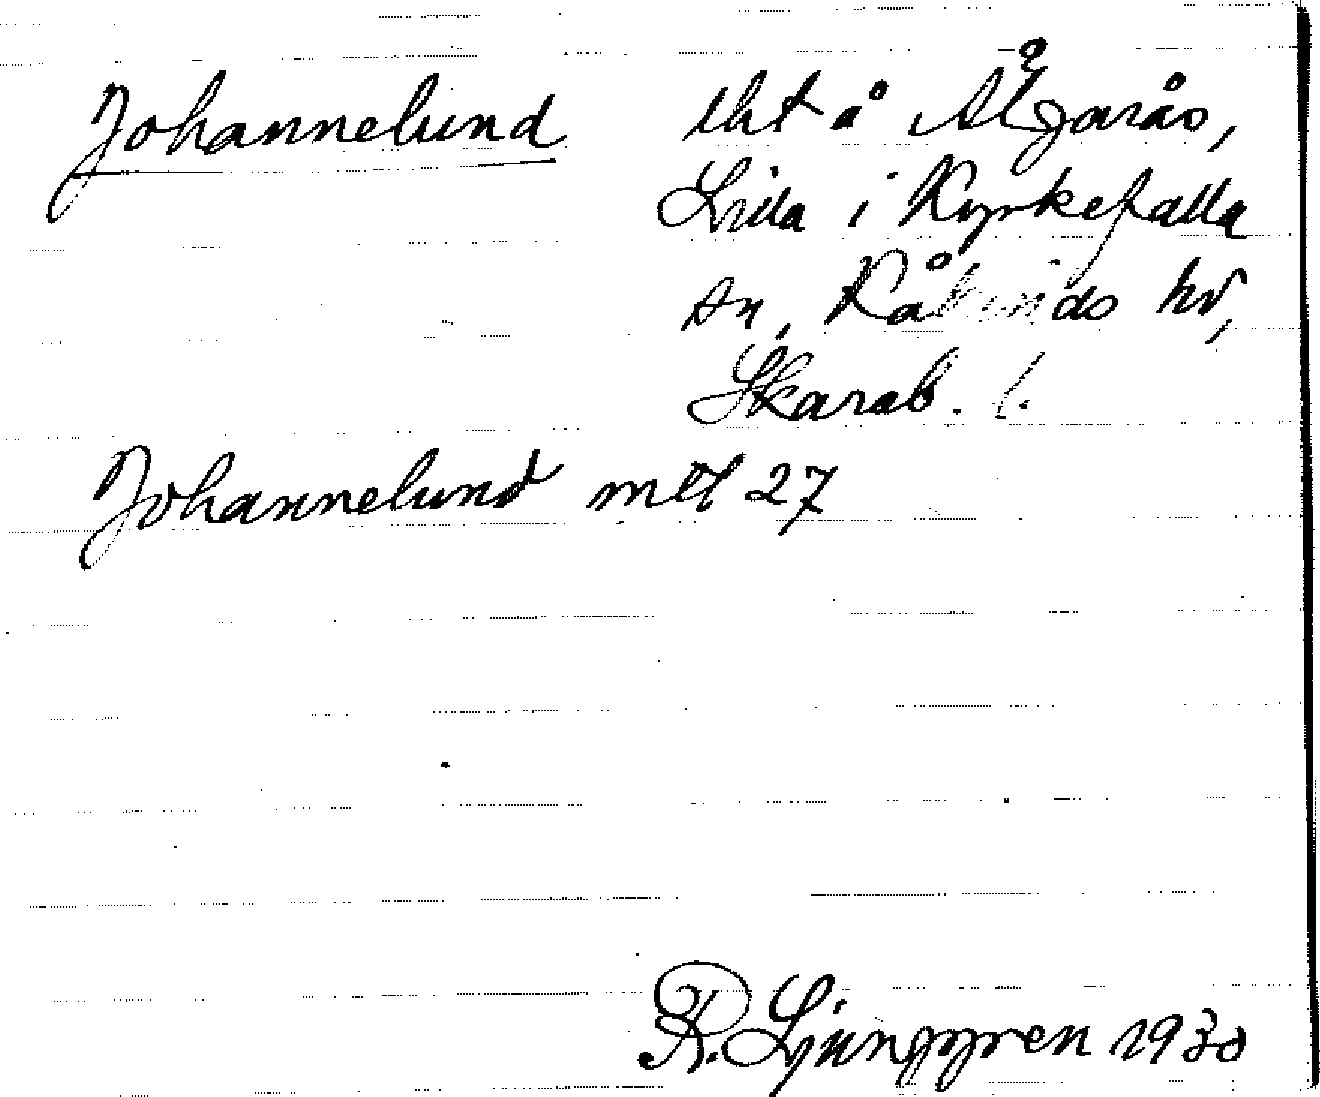 Johannelund lht å Ålgarås,
Lilla i Kyrkefalla
sn, Kåkinds hd,
Skarab. l.
Johannelund mtl 27
R. Ljunggren 1930